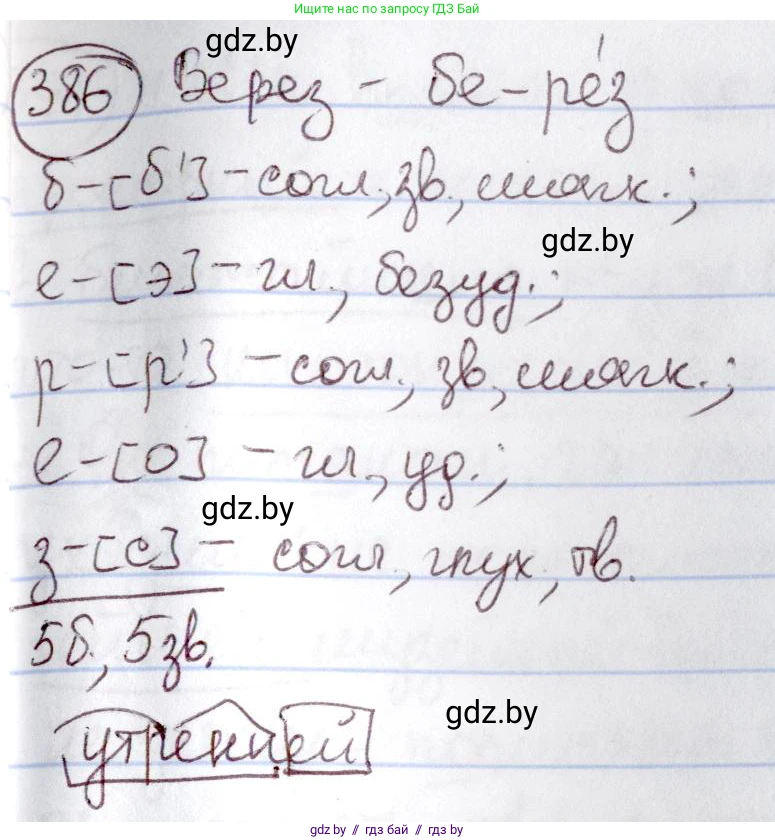 Ищите нас по запросу ГДЗ Бай
gdz.by
386 Берез - бе-ре́з
б-[б'] - согл, зв., мягк.;
gdz.by
е-[э] - гл., безуд.;
р-[р'] - согл., зв, мягк.;
е-[о] - гл, уд.;
gdz.by
з-[с] - согл, глух, тв.
5б., 5зв.
gdz.by
утренней
gdz.by // гдз бай // gdz by